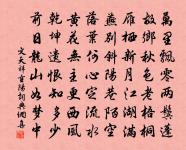 萬里飄零兩鬢蓬
故鄉秋色老梧桐
雁棲新月江湖滿
燕別斜陽巷陌空
落葉何心定流水
黃花無主更西風
乾坤遺恨知多少
前日龍山如夢中
文天祥重陽詞典網喜